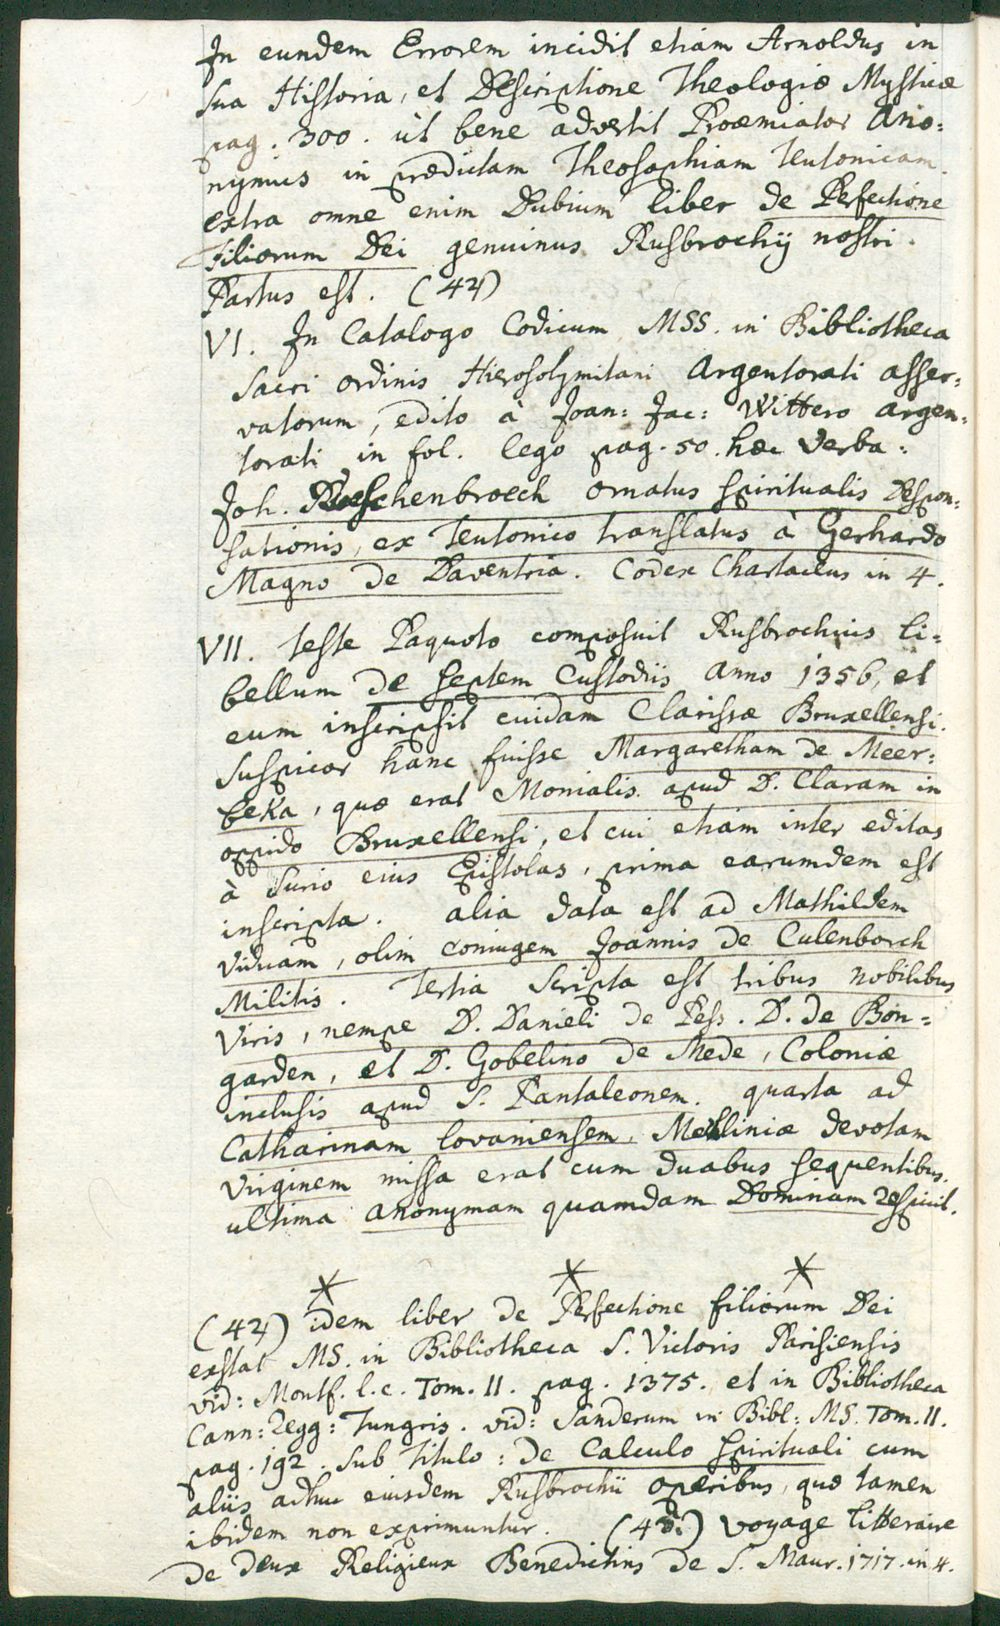 In eundem Errorem incidit etiam Arnoldus in
sua Historia, et Descriptione Theologiæ Mysticæ
pag. 300. ùt bene advertit Proæmiator Ano=
nymus in prædictam Theosophiam Teutonicam.
extra omne enim Dubium liber de Perfectione
Filiorum Dei genuinus Rusbrochij nostri
Partus est. (42)
VI. In Catalogo Codicum MSS. in Bibliotheca
Sacri ordinis Hierosolymitani Argentorati asser=
vatorum, edito à Joan: Jac: Wittero argen=
torati in fol. lego pag. 50. hæc verba:
Joh. Rueschenbroech ornatus spiritualis Despon=
sationis, ex Teutonico translatus à Gerhardo
Magno de Daventria. Codex Chartaceus in 4.
VII. teste Paquoto composuit Rusbrochius li=
bellum de septem Custodiis anno 1356, et
eum inscripsit cuidam Clarissæ Bruxellensi.
Suspicor hanc fuisse Margaretham de Meer=
beka, quæ erat Monialis apud D. Claram in
oppido Bruxellensi, et cui etiam inter editas
à Surio eius Epistolas, prima earumdem est
inscripta. alia data est ad Mathildem
Viduam, olim coniugem Joannis de Culenborch
Militis. Tertia Scripta est tribus nobilibus
Viris, nempe D. Danieli de Pess. D. de Bon=
garden, et D. Gobelino de Mede, Coloniæ
inclusis apud S. Pantaleonem. quarta ad
Catharinam lovaniensem, Mechliniæ devotam
Virginem missa erat cum duabus sequentibus.
ultima anonymam quamdam Dominam respicit.
(42) idem liber de Perfectione filiorum Dei
exstat MS. in Bibliotheca S. Victoris Parisiensis
vid: Montf. l.c. Tom. II. pag. 1375. et in Bibliotheca
Cann: regg: Tungris. vid: Sanderum in Bibl: MS. Tom. II.
pag. 192. sub Titulo: De Calculo spirituali cum
aliis adhuc eiusdem Rusbrochii operibus, quæ tamen
ibidem non exprimuntur. (43.) voyage litteraire
de deux Religieux Benedictins de S. Maur. 1717. in 4.